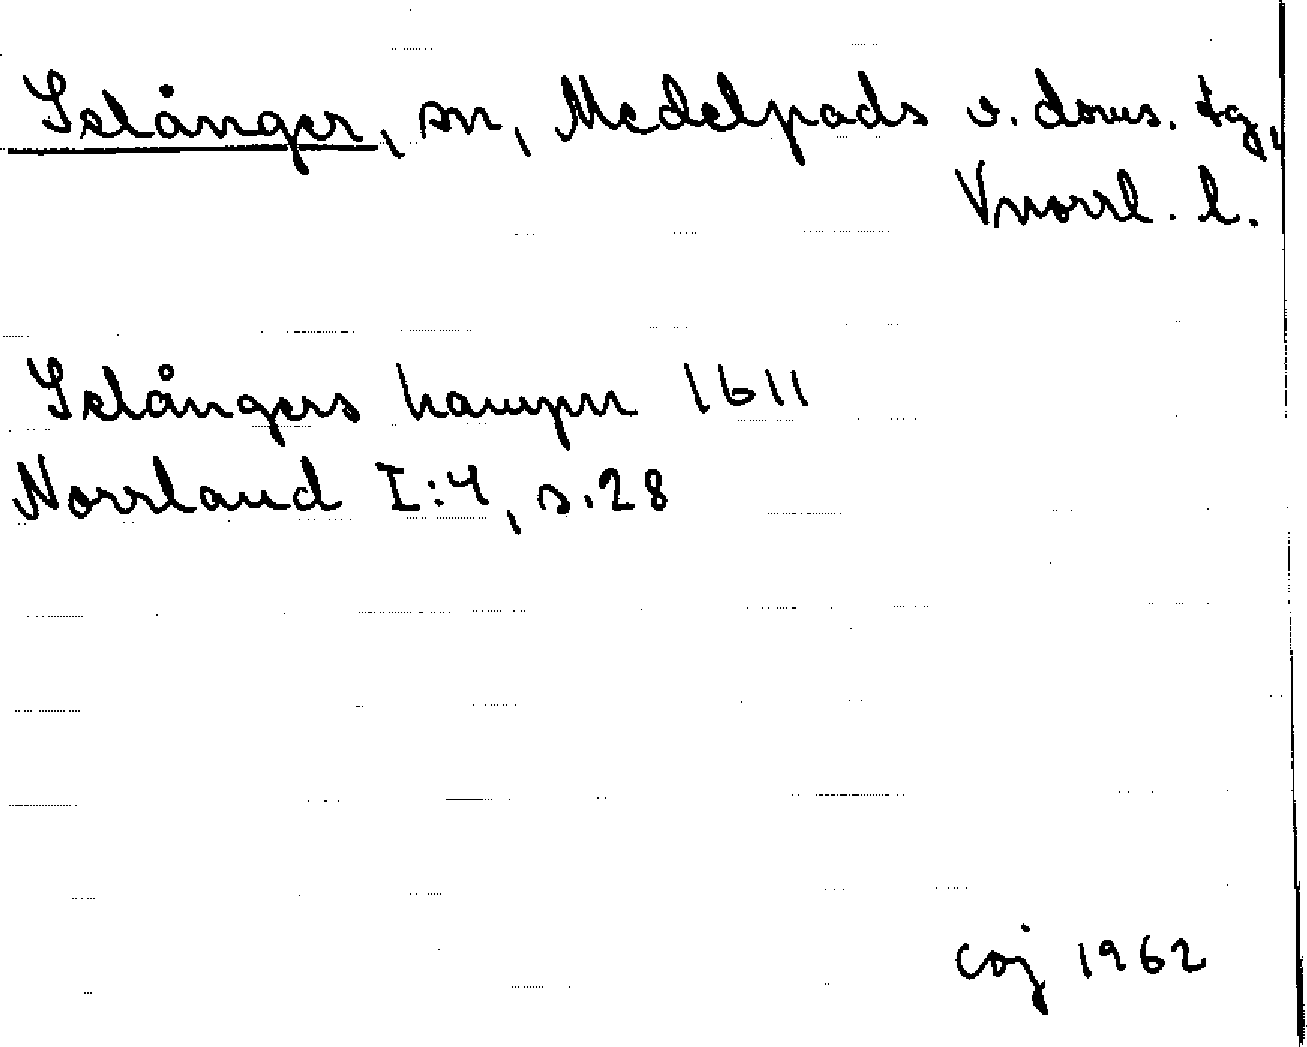 Selånger, sn, Medelpads v. doms. tg,
Vnorrl. l.
Selångers hampn 1611
Norrland I:4, s.28
coj 1962